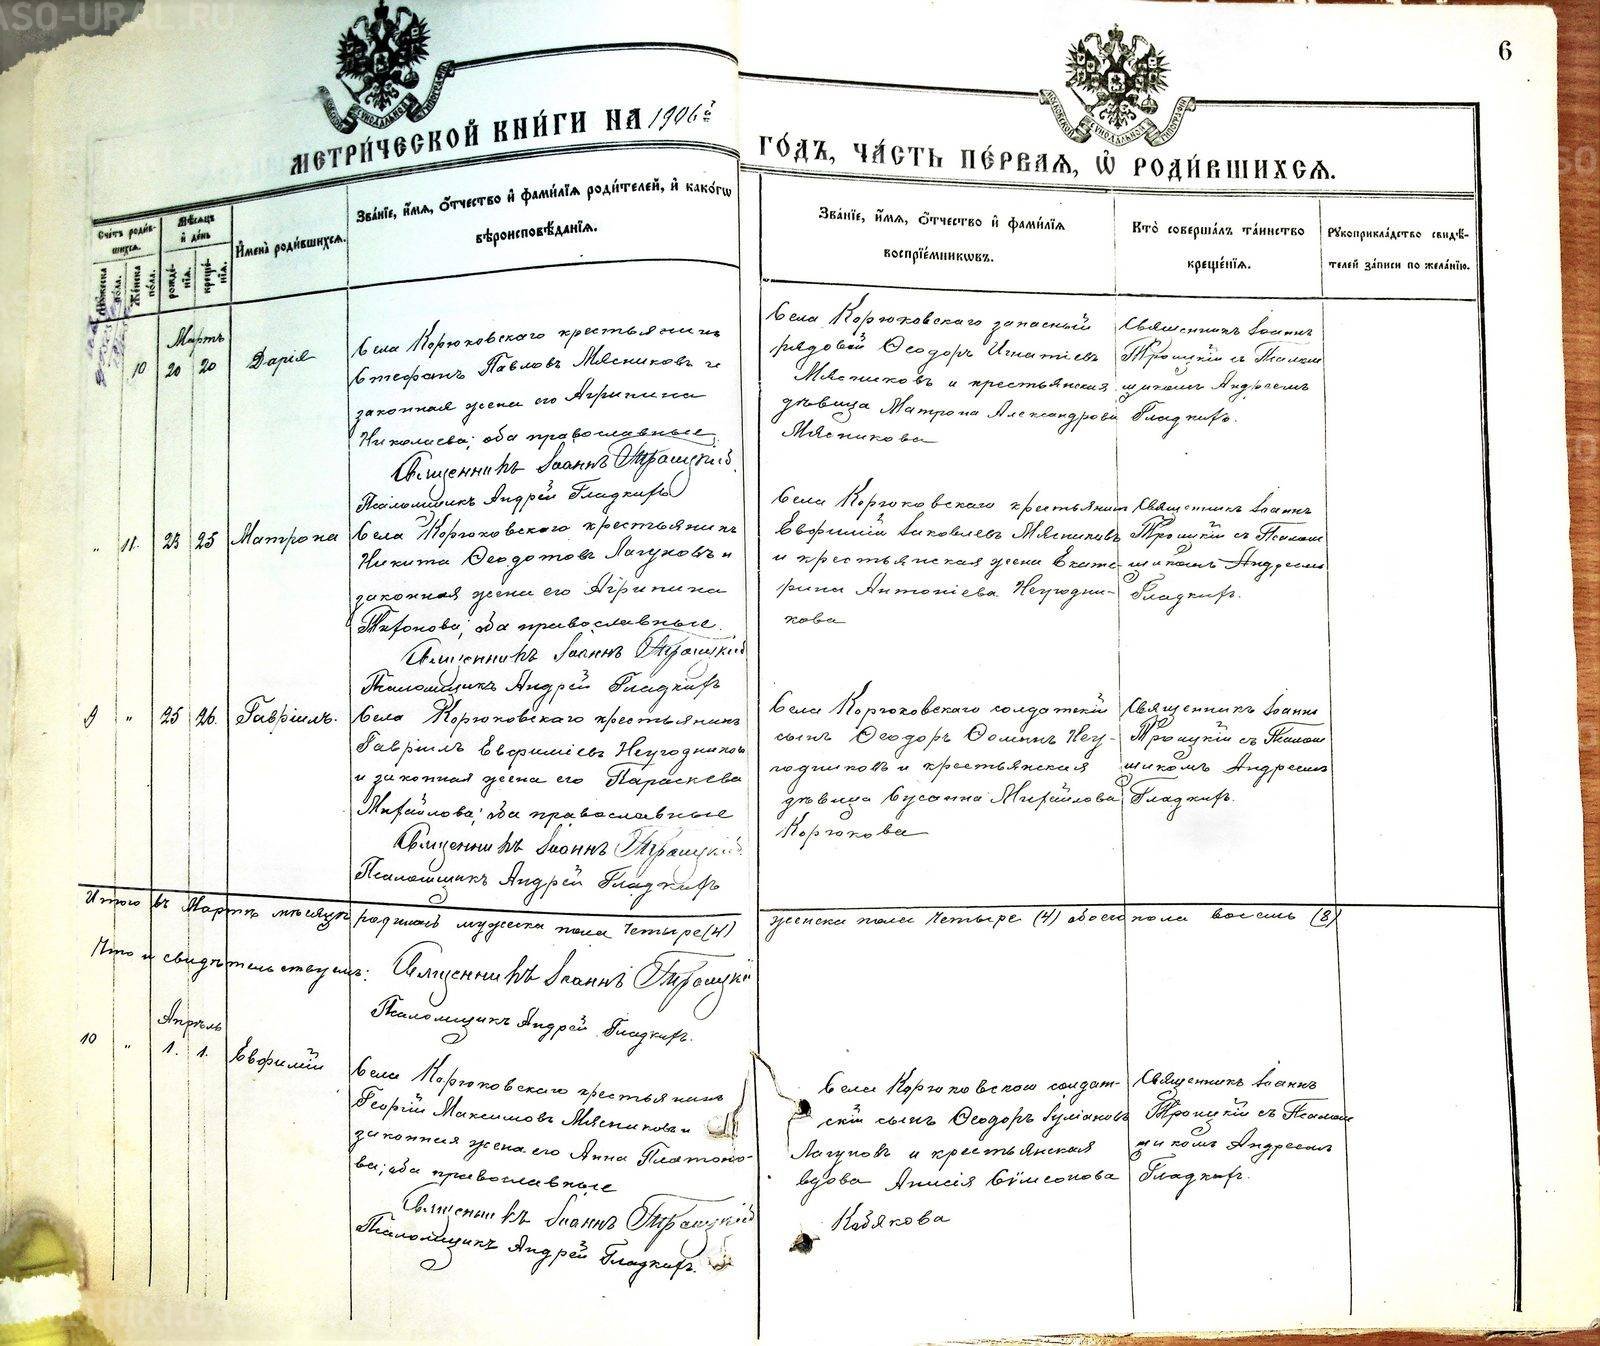 6
МЕТРИ́ЧЕСКОЙ КНИ́ГИ НА 1906й
ГО́ДЪ, ЧА́СТЬ ПЕ́РВАѦ, Ѡ҆ РОДИ́ВШИХСѦ.
Сче́тъ роди́в-
шихсѧ.
Мѣ́сѧцъ
и҆ де́нь
И҆мена̀ роди́вшихсѧ.
Зва́нїе, и҆́мѧ, ѻ҆́тчество и҆ фами́лїѧ роди́телей, и҆ како́гѡ
вѣроисповѣ́данїѧ.
Мꙋ́жеска
по́ла.
Же́нска
по́ла.
рожде́-
нїѧ.
креще́-
нїѧ.
Зва́нїе, и҆́мѧ, ѻ҆́тчество и҆ фами́лїѧ
воспрїе́мникѡвъ.
Кто̀ соверша́лъ та́инство
креще́нїѧ.
Рꙋкоприкла́дство свидѣ́-
телей за́писи по жела́нїю.
Мартъ
10 20 20 Дарія
Села Корюковскаго крестьянинъ
Стефанъ Павловъ Мясниковъ и
законная жена его Агрипина
Николаева; оба православные
Священникъ Іоаннъ Троицкій
Псаломщикъ Андрей Гладкихъ
Села Корюковскаго запасный
рядовой Ѳеодоръ Игнатіевъ
Мясниковъ и крестьянская
дѣвица Матрона Александрова
Мясникова
Священникъ Іоаннъ
Троицкій съ Псалом
щикомъ Андреемъ
Гладкихъ.
" 11. 23 25 Матрона
Села Корюковскаго крестьянинъ
Никита Ѳеодотовъ Лагуновъ и
законная жена его Агрипина
Тихонова; оба православные.
Священникъ Іоаннъ Троицкій
Псаломщикъ Андрей Гладкихъ
Села Корюковскаго крестьянин
Евфимій Іаковлевъ Мясниковъ
и крестьянская жена Екате-
рина Антоніева Неугодни-
кова
Священникъ Іоаннъ
Троицкій съ Псалом
щикомъ Андреемъ
Гладкихъ.
9 " 25 26. Гавріилъ.
Села Корюковскаго крестьянинъ
Гавріилъ Евфиміевъ Неугодниковъ
и законная жена его Параскева
Михайлова; оба православные
Священникъ Іоаннъ Троицкій
Псаломщикъ Андрей Гладкихъ
Села Корюковскаго солдатскій
сынъ Ѳеодоръ Ѳоминъ Неу-
годниковъ и крестьянская
дѣвица Сусанна Михайлова
Корюкова
Священникъ Іоаннъ
Троицкій съ Псалом
щикомъ Андреемъ
Гладкихъ.
Итого въ Мартѣ мѣсяцѣ родилось мужеска пола четыре (4)
женска пола четыре (4) обоего пола восемь (8)
Что и свидѣтельствуемъ: Священникъ Іоаннъ Троицкій
Псаломщикъ Андрей Гладкихъ.
Апрѣль
10 " 1. 1. Евфимій
Села Корюковскаго крестьянинъ
Георгій Максимовъ Мясниковъ и
законная жена его Анна Платоно-
ва; оба православные
Священникъ Іоаннъ Троицкій
Псаломщикъ Андрей Гладкихъ.
Села Корюковскаго солдат-
скій сынъ Ѳеодоръ Іуліановъ
Лагуновъ и крестьянская
вдова Анисія Сѵмеонова
Кобякова
Священникъ Іоаннъ
Троицкій съ Псалом
щикомъ Андреемъ
Гладкихъ.